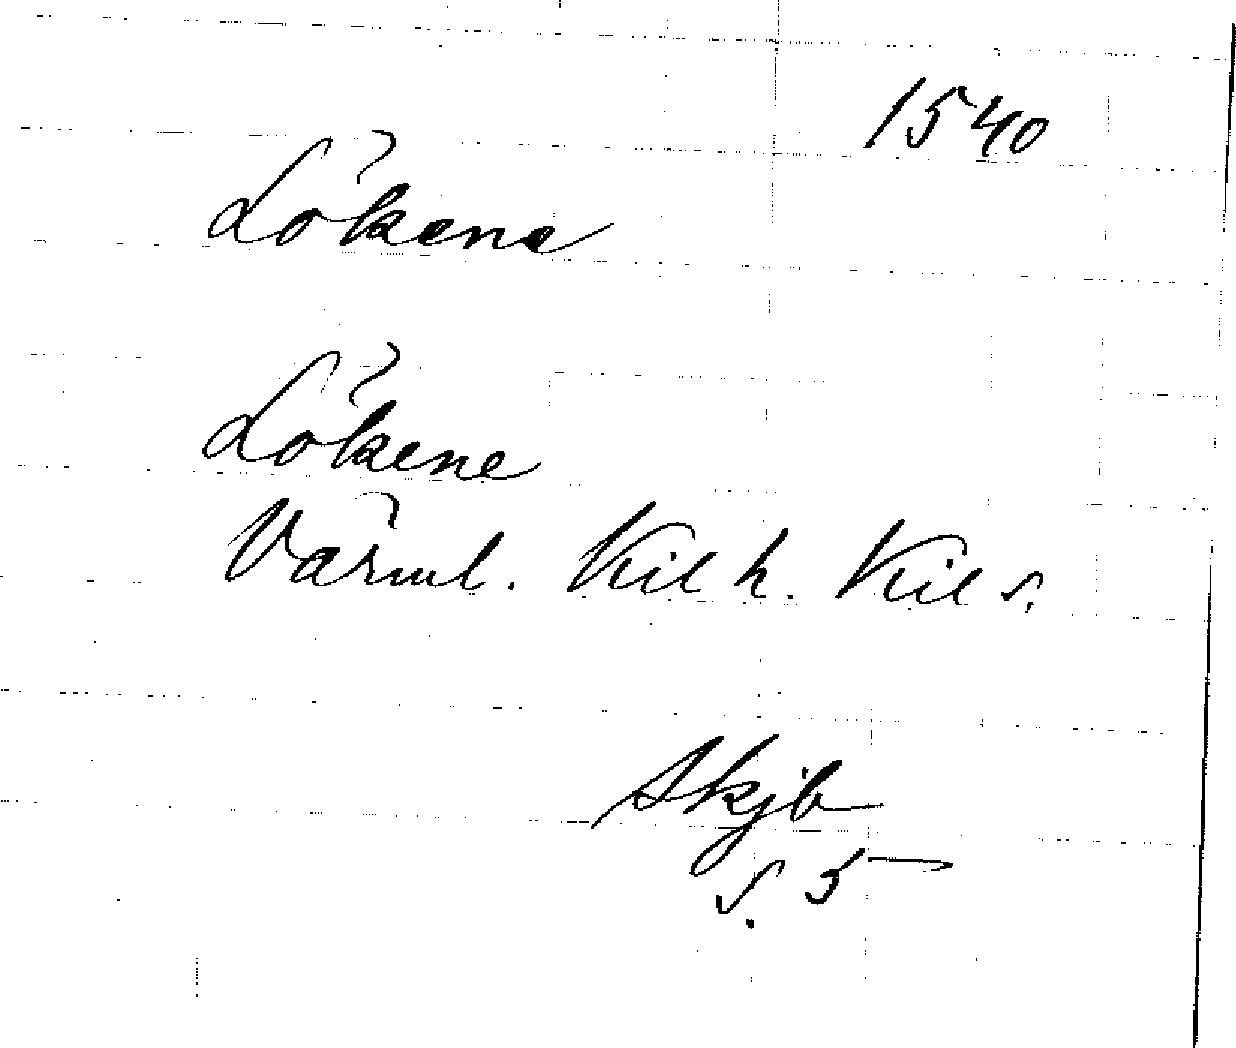 1540
Lökene
Lökene
Värml. Kil h. Kil s.
Skjb
s. 5